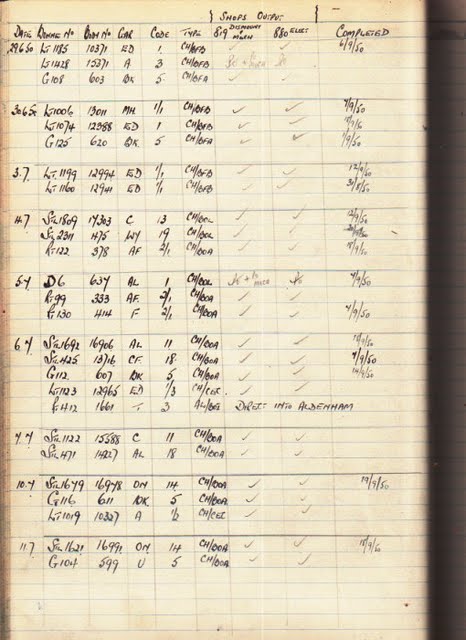 SHOPS OUTPUT
DATE BONNE NO BODY NO GAR CODE TYPE 819 DISMOUNT & MECH 880 ELECT COMPLETED
29.6.50 LT 1185 10371 ED 1 CH/BFB ✓ ✓ 6/9/50
LT 1428 15371 A 3 CH/BFB
G 108 603 BK 5 CH/BFA ✓ ✓
30.6.50 LT 1006 13011 MH 1/1 CH/BFB ✓ ✓ 7/9/50
LT 1074 12388 ED 1 CH/BFB ✓ ✓
G 125 620 BK 5 CH/BFA ✓ ✓ 1/9/50
3.7 LT 1199 12994 ED 1/1 CH/BFB ✓ ✓ 12/9/50
LT 1160 12941 ED 1/1 CH/BFB ✓ ✓ 31/8/50
4.7 STL 1809 17303 C 13 CH/BOL ✓ ✓ 12/9/50
STL 2311 475 WY 19 CH/BOL ✓ ✓
RT 122 378 AF 2/1 CH/BOA ✓ ✓
5.7 D6 637 AL 1 CH/BOL 4/9/50
RT 99 333 AF 2/1 CH/BOA ✓ ✓
RT 130 414 F 2/1 CH/BOA ✓ ✓ 4/9/50
6.7 STL 1692 16906 AL 11 CH/BOA ✓ ✓
STL 425 13716 CF 18 CH/BOA ✓ ✓ 4/9/50
G 112 607 BK 5 CH/BOA ✓ ✓ 14/9/50
LT 1123 12965 ED 1/3 CH/CEC ✓ ✓
1661 3 DIRECT INTO ALDENHAM
7.7 STL 1122 15588 C 11 CH/BOA ✓ ✓
STL 471 14227 AL 18 CH/BOA ✓ ✓
10.7 STL 1679 16948 ON 14 CH/BOA ✓ ✓ 19/9/50
G 116 611 BK 5 CH/BOA ✓ ✓
LT 1019 10327 A 1/2 CH/CEC ✓ ✓
11.7 STL 1621 16991 ON 14 CH/BOA ✓ ✓ 18/9/50
G 104 599 U 5 CH/BOA ✓ ✓